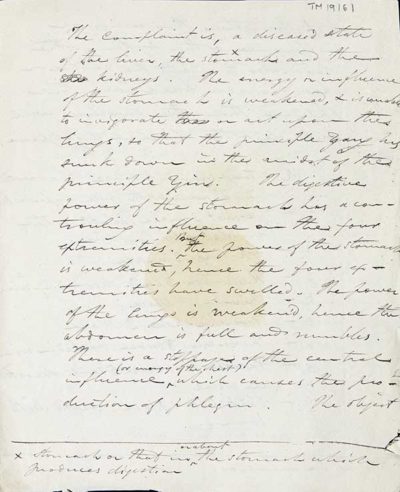 TM/9/6/
The complaint is, a diseased state
of the liver, the stomach x and the
kidneys. The energy or influence
of the stomach is weakened, & is unable
to invigorate or act upon the
lungs, so that the principle Yang has
sunk down in the midst of the
principle Yin. The digestive
power of the stomach has a con-
trouling influence on the four
extremities. but the power of the stomach
is weakened, hence the four ex-
tremities have swelled. The power
of the lungs is weakened, hence the
abdomen is full and rumbles.
There is a stoppage of the central
(or energy of the chest)
influence, which causes the pro-
duction of phlegm. The object
x Stomach or that in or about the stomach which
produces digestion